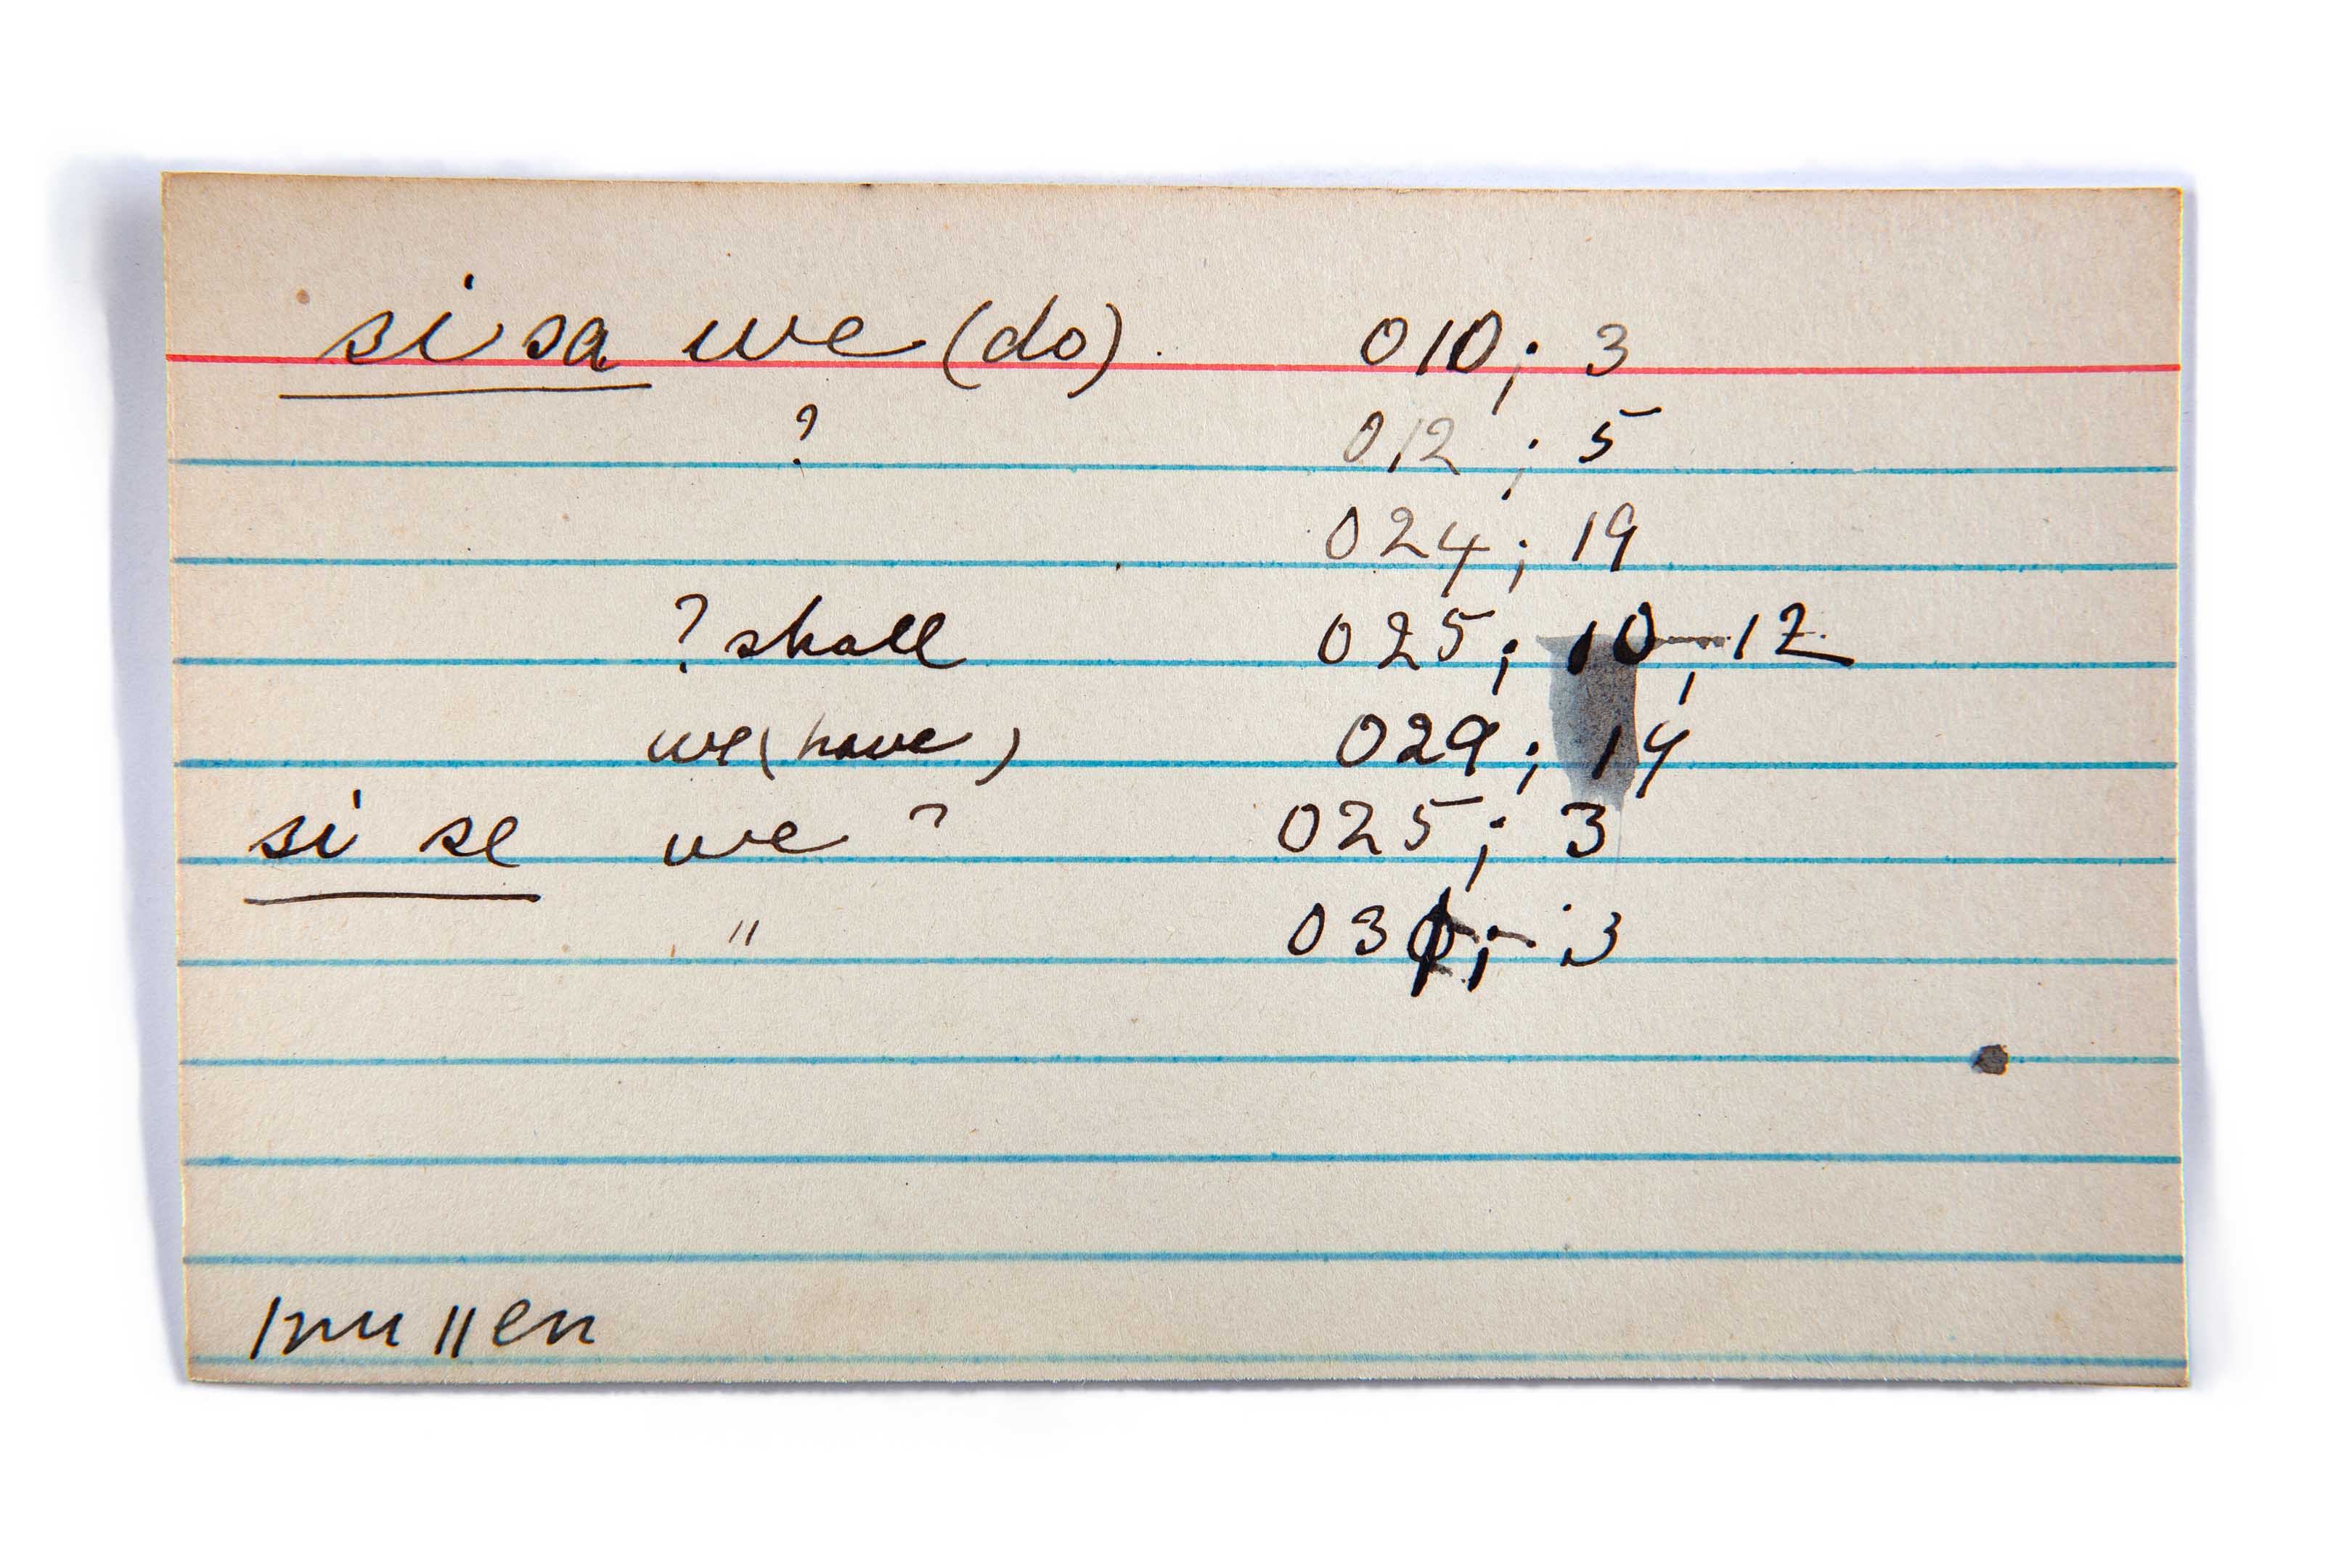 si sa we (do) 010; 3
? 012; 5
024; 19
? shall 025; 10, 12
we (have) 029; 14
si se we ? 025; 3
" 3